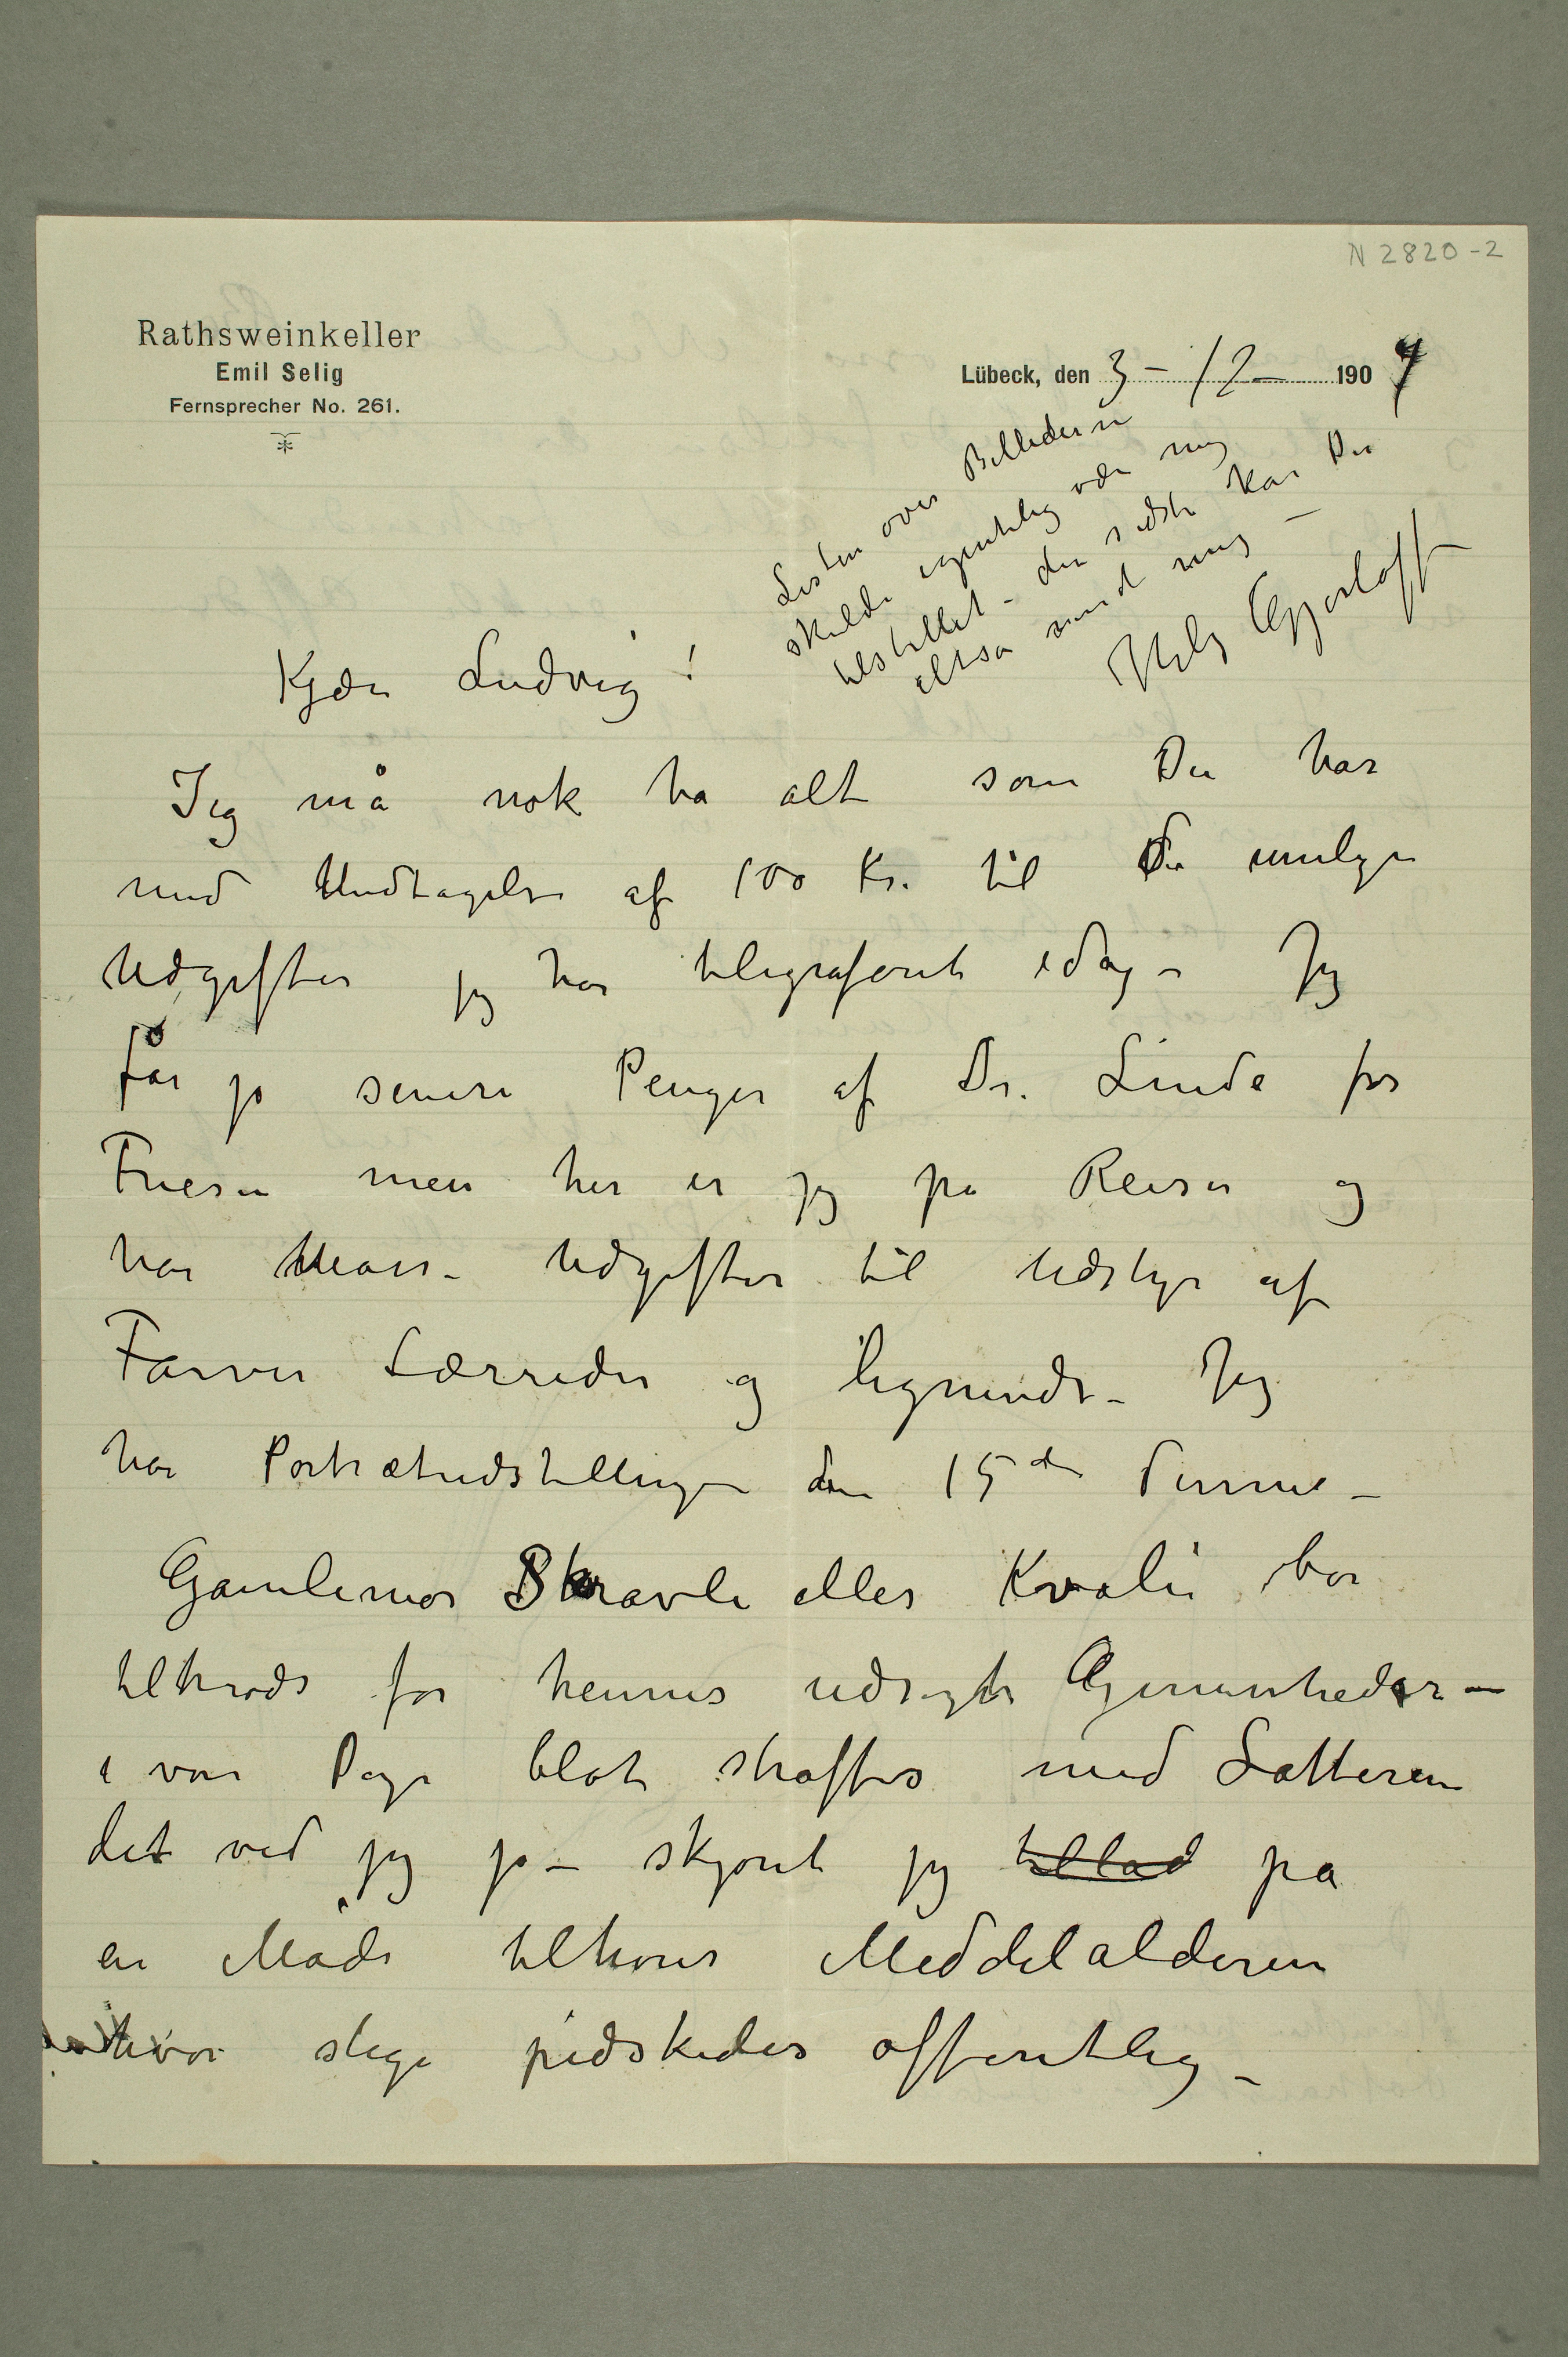 N 2820-2
Rathsweinkeller
Emil Selig
Fernsprecher No. 261.
Lübeck, den 3-12- 1904
Listen over Billederne
skulde egentlig være mig
tilstillet - den sidste har Du
altsa send mig -
Hils Gjerløff
Kjære Ludvig!
Jeg må nok ha alt som Du har
med Undtagelse af 100 Kr. til de umlige
Udgifter jeg har telegraferet idag - Jeg
får jo senere Penger af Dr. Linde for
Friesen men her er jeg på Reiser og
har Mass- Udgifter til Udstyr af
Farver Lærreder og lignende - Jeg
har Portrætudstillingen den 15de dennes -
Gamlemor Skravle eller Kvalie bør
tiltrods for hennes udsøgte Gemenheder -
i vore Dage blot straffes med Latteren
det ved jeg jo - skjønt jeg tillad på
en Måde tilhører Meddelalderen
hvor slige pidskedes offentlig -